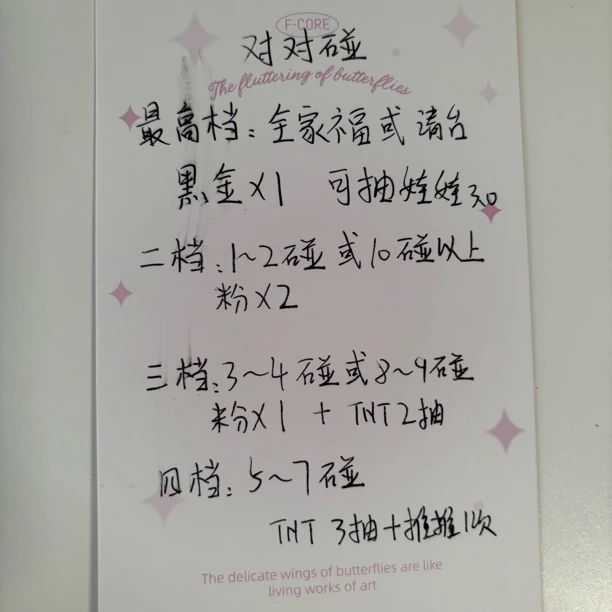 F-CORE
对对碰
The fluttering of butterflies
最高档：全家福或清台
黑金×1 可抽娃娃3.0
二档：1~2碰或10碰以上
粉×2
三档：3~4碰或8~9碰
粉×1 + TNT2抽
四档：5~7碰
TNT 3抽+推推1次
The delicate wings of butterflies are like
living works of art